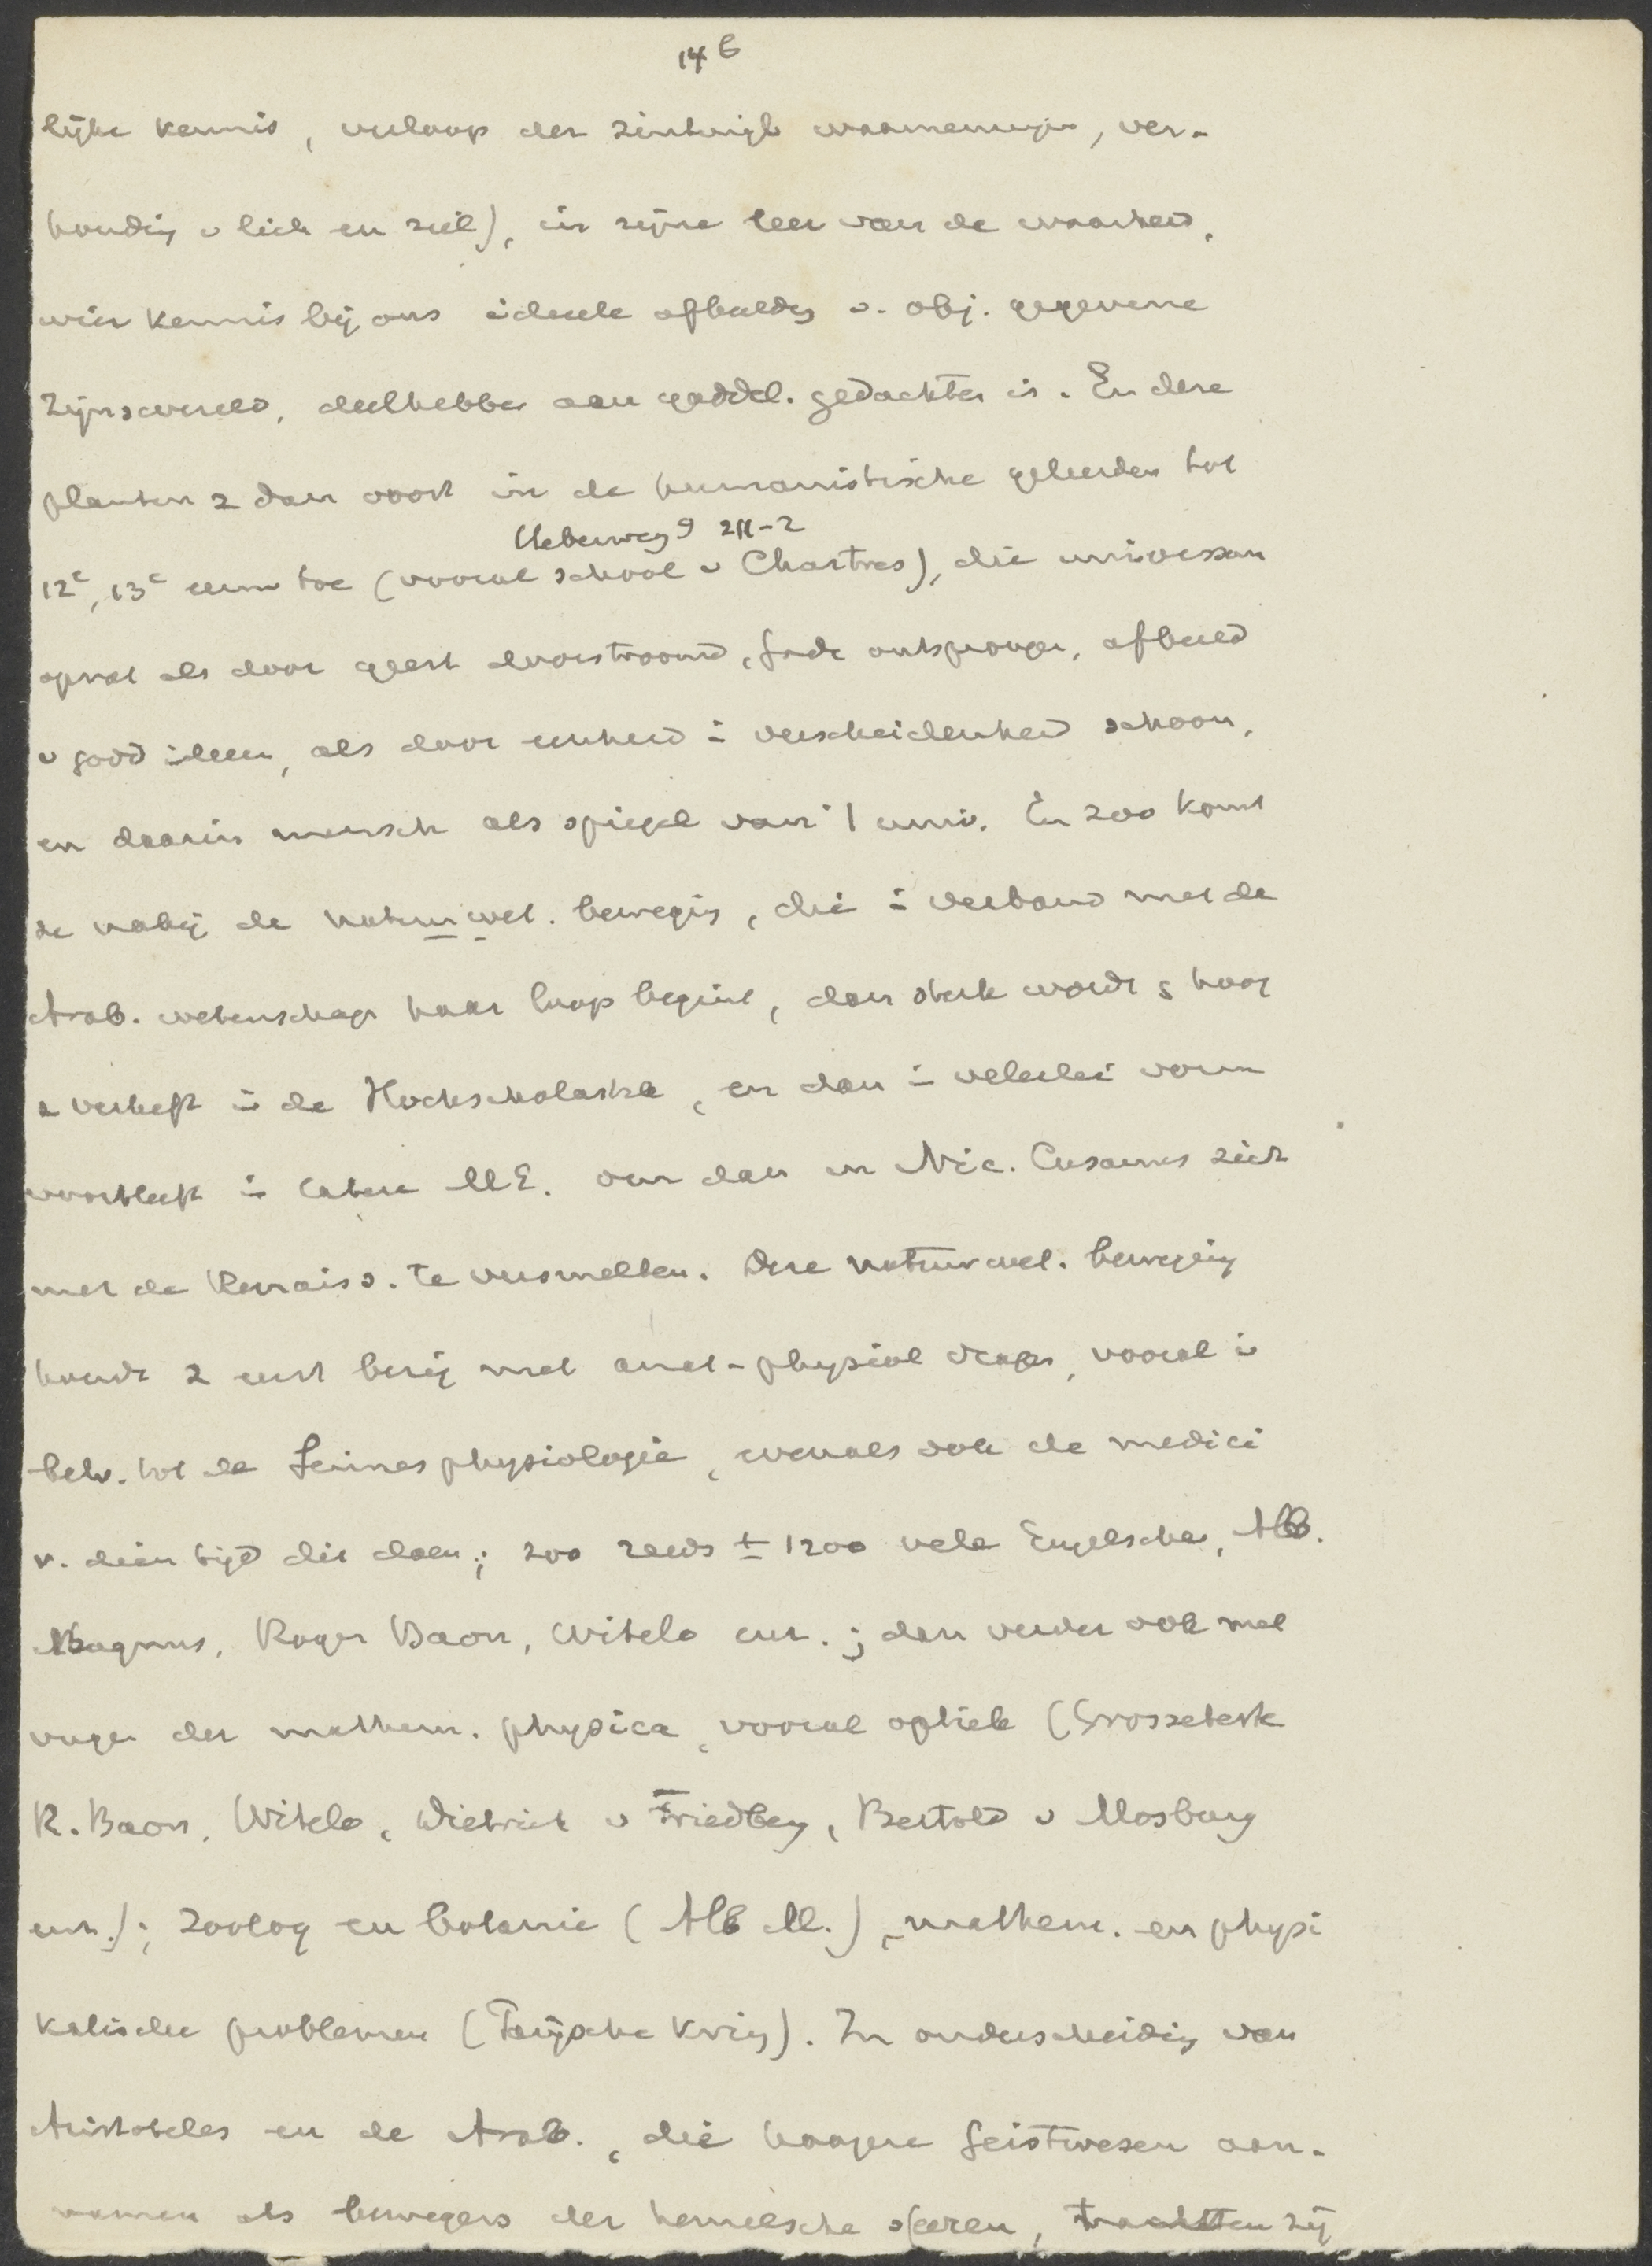 14b
lijke kennis, verloop der zintuigl waarnemingen, ver-
houding v lich en ziel), in zijne leer van de waarheid,
wier kennis bij ons ideele afbeeldg v. obj. gegevene
zijnswereld, deelhebben aan goddel. gedachten is. En deze
planten z dan voort in de humanistische geleerden tot
Ueberweg 9 2II-2
12e, 13e eeuw toe (vooral school v Chartres), die universum
opvat als door geest doorstroomd, Gode ontsprongen, afbeeld
v god ideeen, als door eenheid i verscheidenheid schoon,
en daarin mensch als spiegel van 't univ. En zoo komt
ze nabij de natuurwet. beweging, die i verband met de
Arab. wetenschap haar loop begint, dan sterk wordt hoog
z verheft i de Hochscholastik, en dan i velerlei vorm
voortleeft i latere ME. om dan in Nic. Cusanus zich
met de Renaiss. te versmelten. Deze natuurwet. beweging
houdt z eerst bezig met anat-physiol vragen, vooral i
betr. tot de Sinnesphysiologie, evenals ook de medici
v. dien tijd dit doen; zoo reeds ± 1200 vele Engelschen, Alb.
Magnus, Roger Bacon, Witelo enz.; dan verder ook met
vragen der mathem. physica, vooral optiek (Grosseteste
R. Bacon, Witelo, Dietrich v Friedberg, Bertold v Mosburg
enz.); zoolog en botanie (Alb M.), mathem. en physi
kalische problemen (Parijsche kring). In onderscheiding van
Aristoteles en de Arab., die hoogere Geistwesen aan-
namen als bewegers der hemelsche sferen, trachtten zij